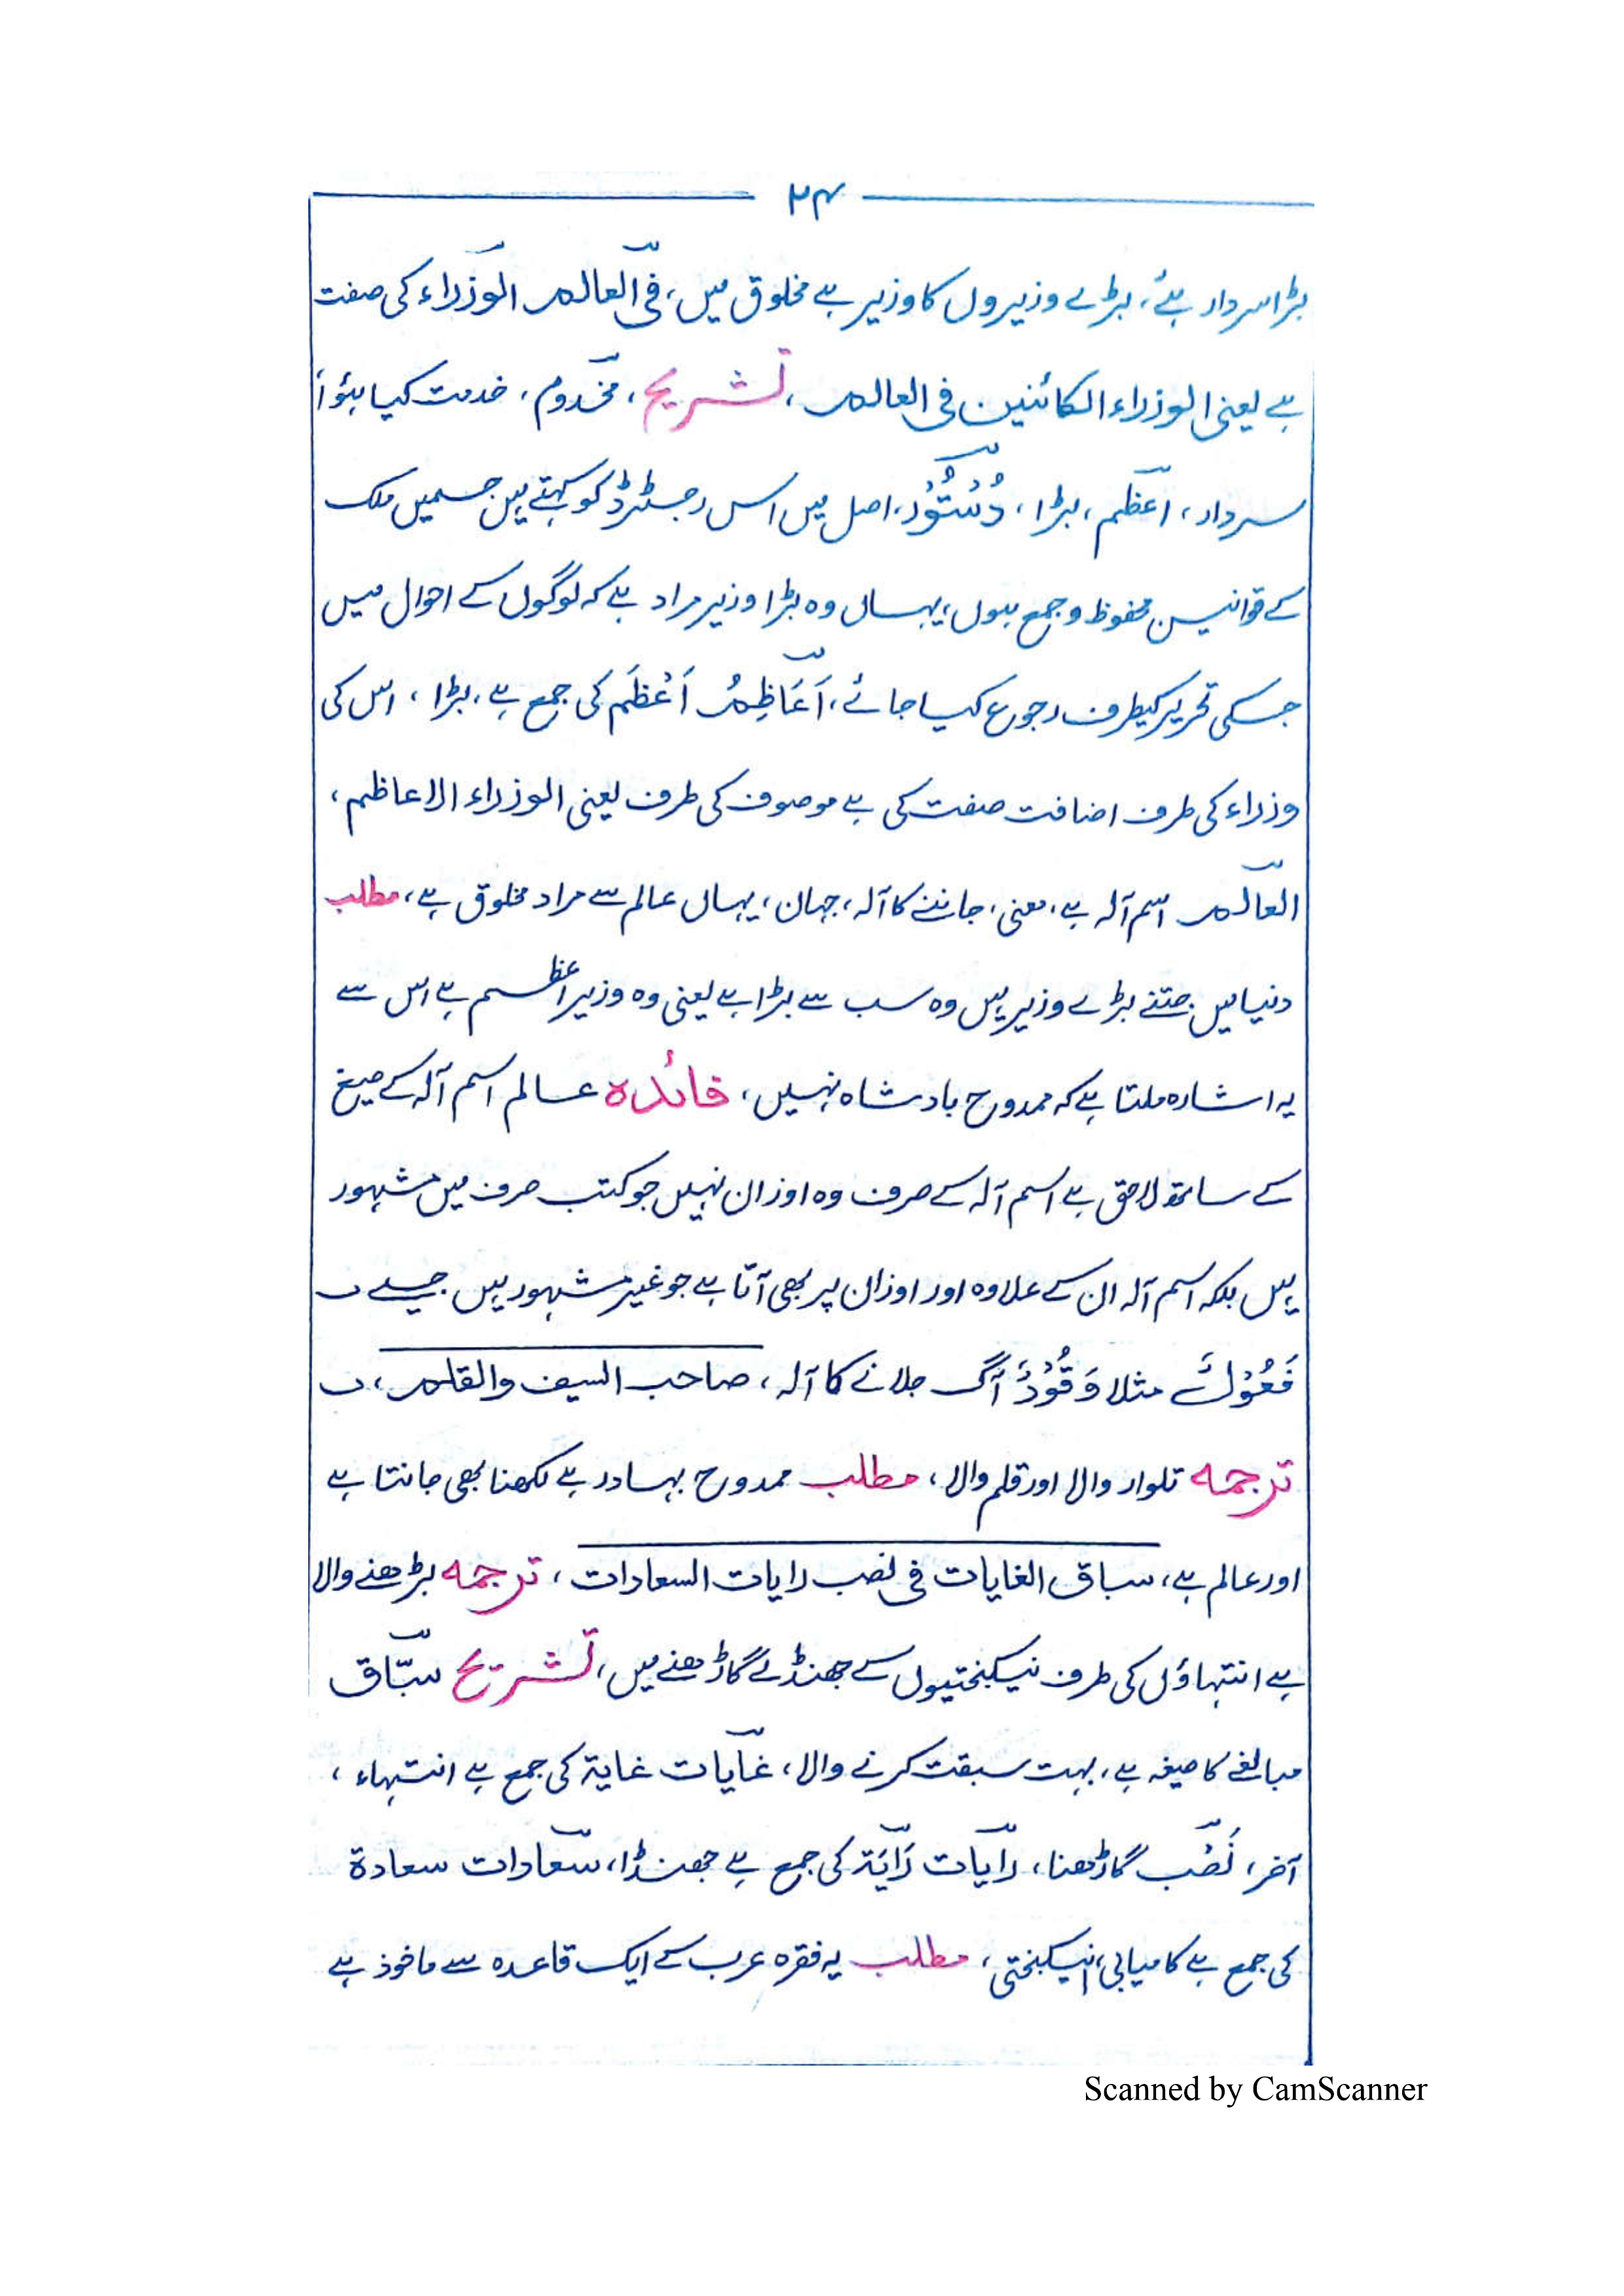 ۲۴
بڑا سردار ہے، بڑے وزیروں کا وزیر ہے مخلوق میں، فی العالم الوزراء کی صفت
ہے یعنی الوزراء الکائنین فی العالم، تشریح، مخدوم، خدمت کیا ہؤا
سردار، اعظم، بڑا، دُسْتُوْر، اصل میں اس رجسٹرڈ کو کہتے ہیں جسمیں ملک
کے قوانین محفوظ و جمع ہوں، یہاں وہ بڑا وزیر مراد ہے کہ لوگوں کے احوال میں
جسکی تحریر کیطرف رجوع کیا جائے، اَعَاظِمُ اَعْظَم کی جمع ہے، بڑا، اس کی
وزراء کی طرف اضافت صفت کی ہے موصوف کی طرف یعنی الوزراء الاعاظم،
العالم اسم آلہ ہے، معنی، جاننے کا آلہ، جہان، یہاں عالم سے مراد مخلوق ہے، مطلب
دنیا میں جتنے بڑے وزیر ہیں وہ سب سے بڑا ہے یعنی وہ وزیر اعظم ہے اس سے
یہ اشارہ ملتا ہے کہ ممدوح بادشاہ نہیں، فائدہ عالم اسم آلہ کے صیغ
کے ساتھ لاحق ہے اسم آلہ کے صرف وہ اوزان نہیں جو کتب صرف میں مشہور
ہیں بلکہ اسم آلہ ان کے علاوہ اور اوزان پر بھی آتا ہے جو غیر مشہور ہیں جیسے
فَعُوْلٌ مثلا وَقُوْدٌ آگ جلانے کا آلہ، صاحب السیف والقلم،
ترجمہ تلوار والا اور قلم والا، مطلب ممدوح بہادر ہے لکھنا بھی جانتا ہے
اور عالم ہے، سباق الغایات فی نصب رایات السعادات، ترجمہ بڑھنے والا
ہے انتہاؤں کی طرف نیکبختیوں کے جھنڈے گاڑھنے میں، تشریح سبّاق
مبالغے کا صیغہ ہے، بہت سبقت کرنے والا، غایات غایۃ کی جمع ہے انتہاء،
آخر، نَصْب گاڑھنا، رایات رَایَۃ کی جمع ہے جھنڈا، سعادات سعادۃ
کی جمع ہے کامیابی، نیکبختی، مطلب یہ فقرہ عرب کے ایک قاعدہ سے ماخوذ ہے
Scanned by CamScanner